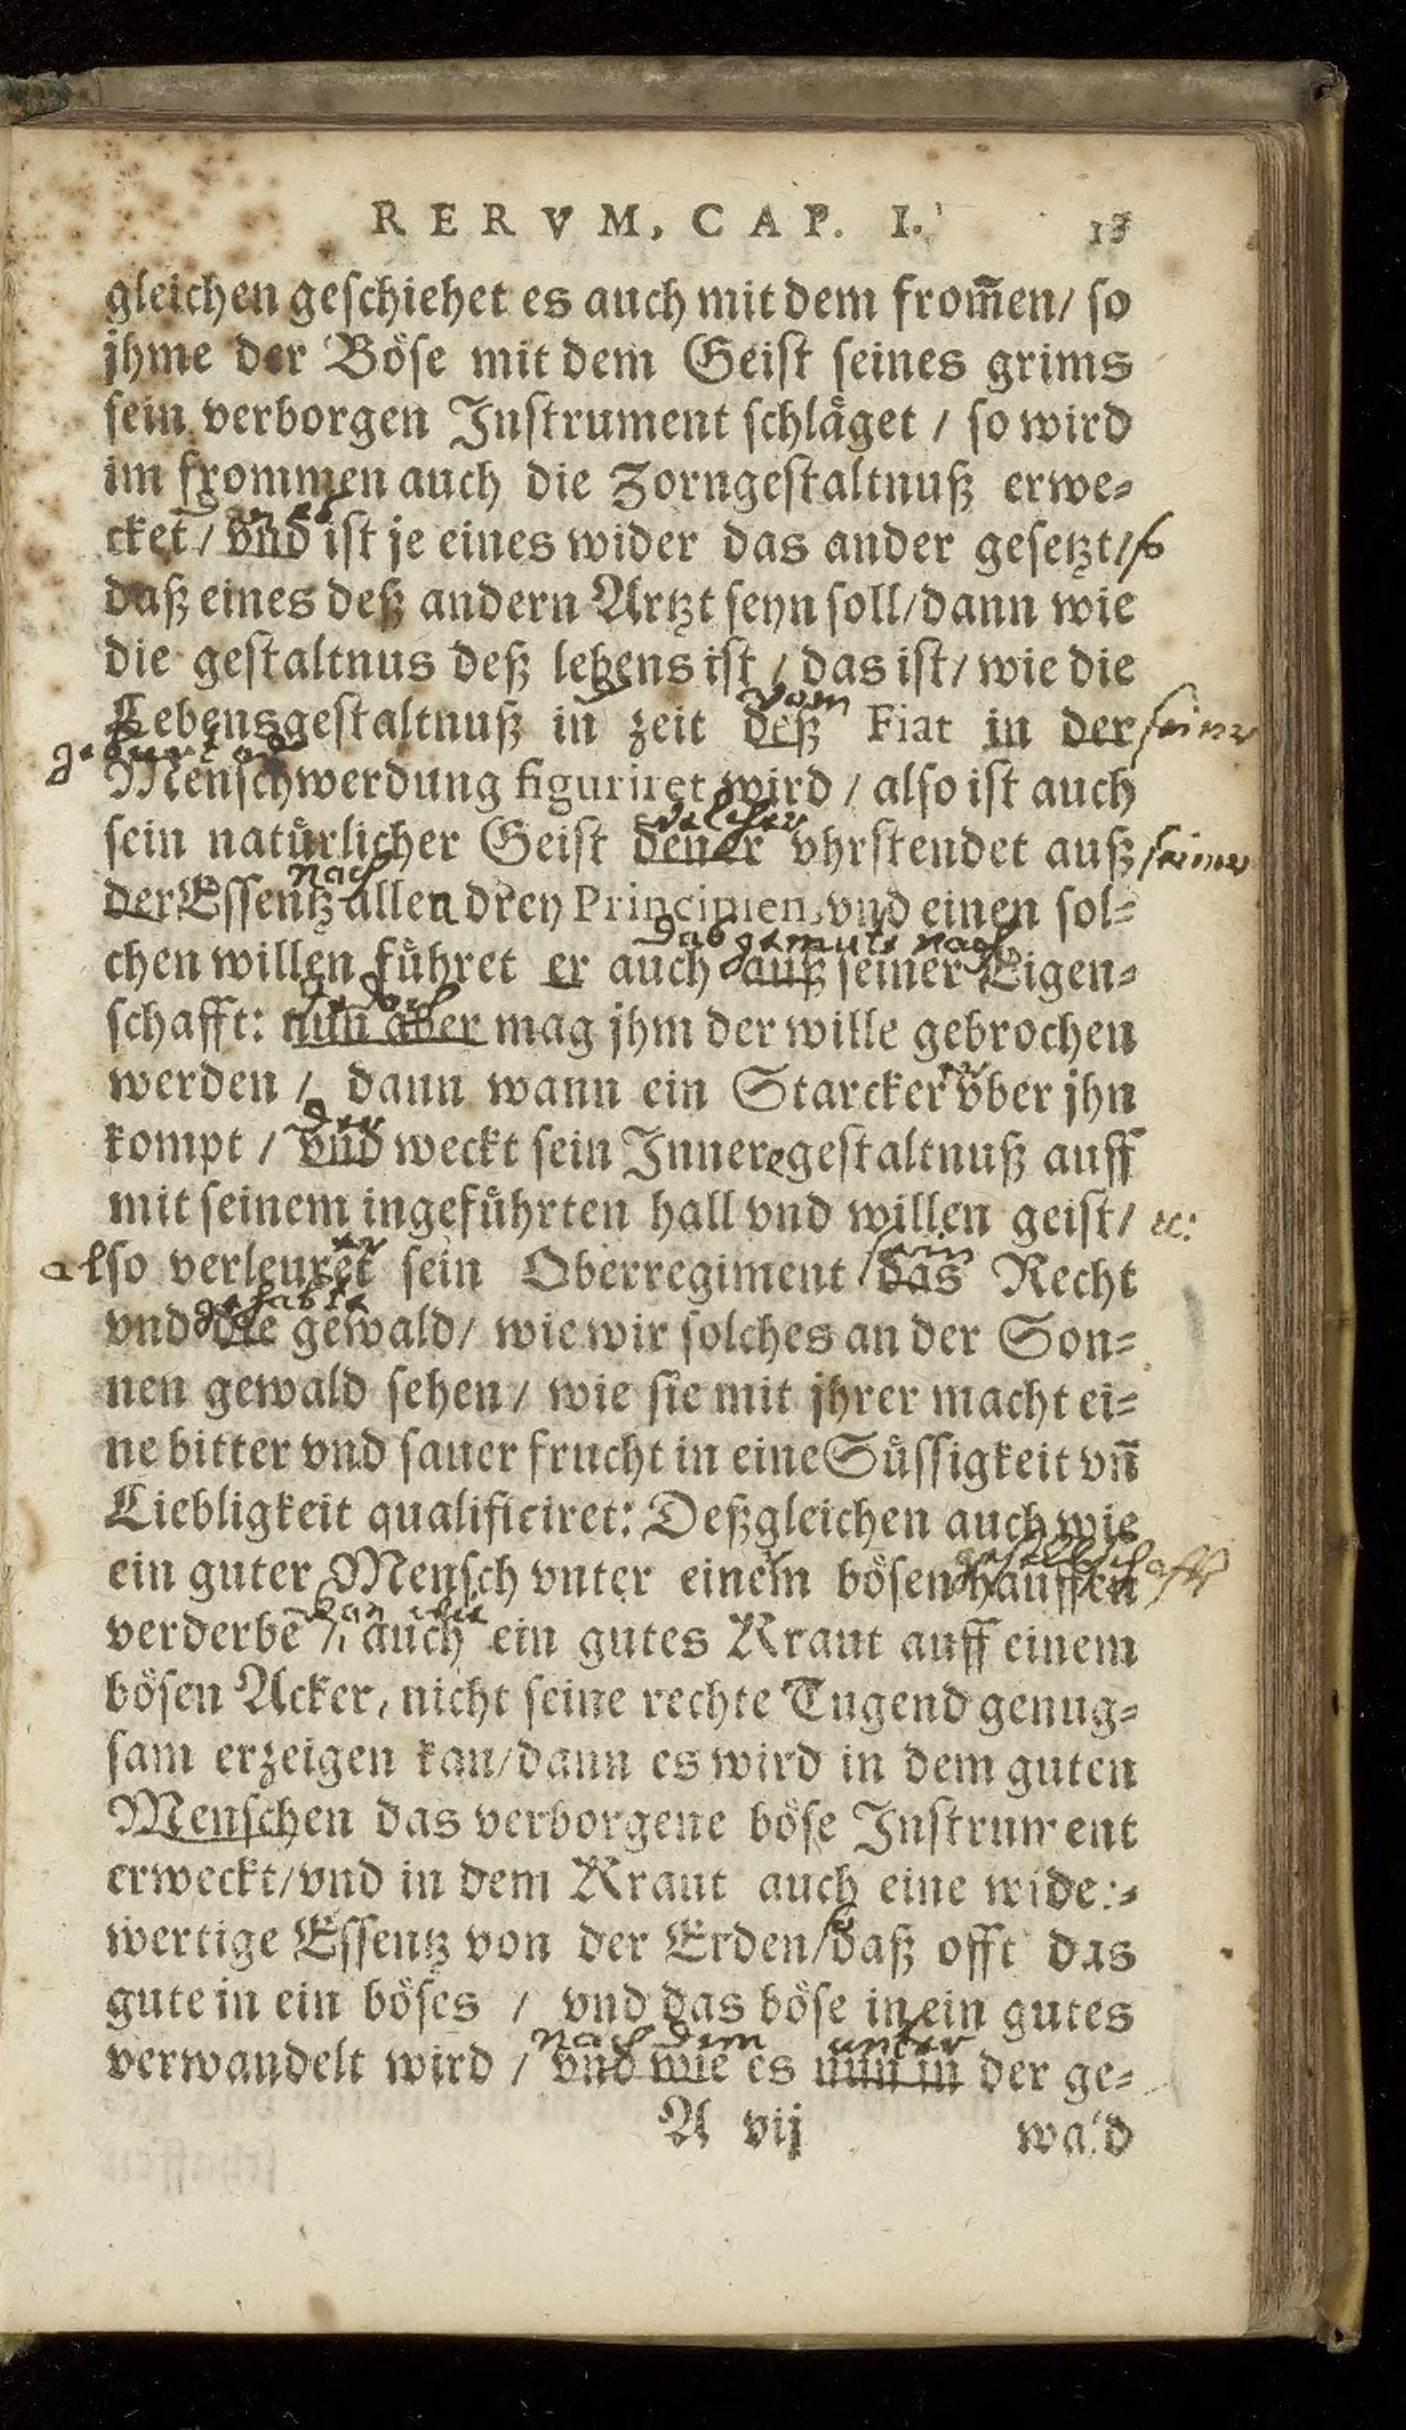 RERVM, CAP. I. 13
gleichen geschiehet es auch mit dem from̃en/ so
jhme der Böse mit dem Geist seines grims
sein verborgen Instrument schläget / so wird
im frommen auch die Zorngestaltnuß erwe-
cket / vnd ist je eines wider das ander gesetzt/ so
daß eines deß andern Artzt seyn soll/dann wie
die gestaltnus deß lebens ist / das ist/ wie die
vom
Lebensgestaltnuß in zeit deß Fiat in der seiner
geburt od
Menschwerdung figuriret wird / also ist auch
welcher
sein natürlicher Geist dener vhrstendet auß seiner
nach
der Essentz allen drey Principien, vnd einen sol-
das gemüte nach
chen willen führet er auch auß seiner Eigen-
Jedoch
schafft: nun aber mag jhm der wille gebrochen
werden / dann wann ein Starcker vber jhn
der
kompt / vnd weckt sein Inneregestaltnuß auff
mit seinem ingeführten hall vnd willen geist/ ec:
er sein
also verleuret sein Oberregiment / das Recht
gehabte
vnd die gewald/ wie wir solches an der Son-
nen gewald sehen/ wie sie mit jhrer macht ei-
ne bitter vnd sauer frucht in eine Süssigkeit vñ
Liebligkeit qualificiret: Deßgleichen auch wie
gesellschafft
ein guter Mensch vnter einem bösen hauffen
kan wie
verderbē / auch ein gutes Kraut auff einem
bösen Acker, nicht seine rechte Tugend genug-
sam erzeigen kan/dann es wird in dem guten
Menschen das verborgene böse Instrument
erweckt/vnd in dem Kraut auch eine wider-
wertige Essentz von der Erden/ daß offt das
gute in ein böses / vnd das böse in ein gutes
nach dem unter
verwandelt wird / vnd wie es nun in der ge-
A vij wald